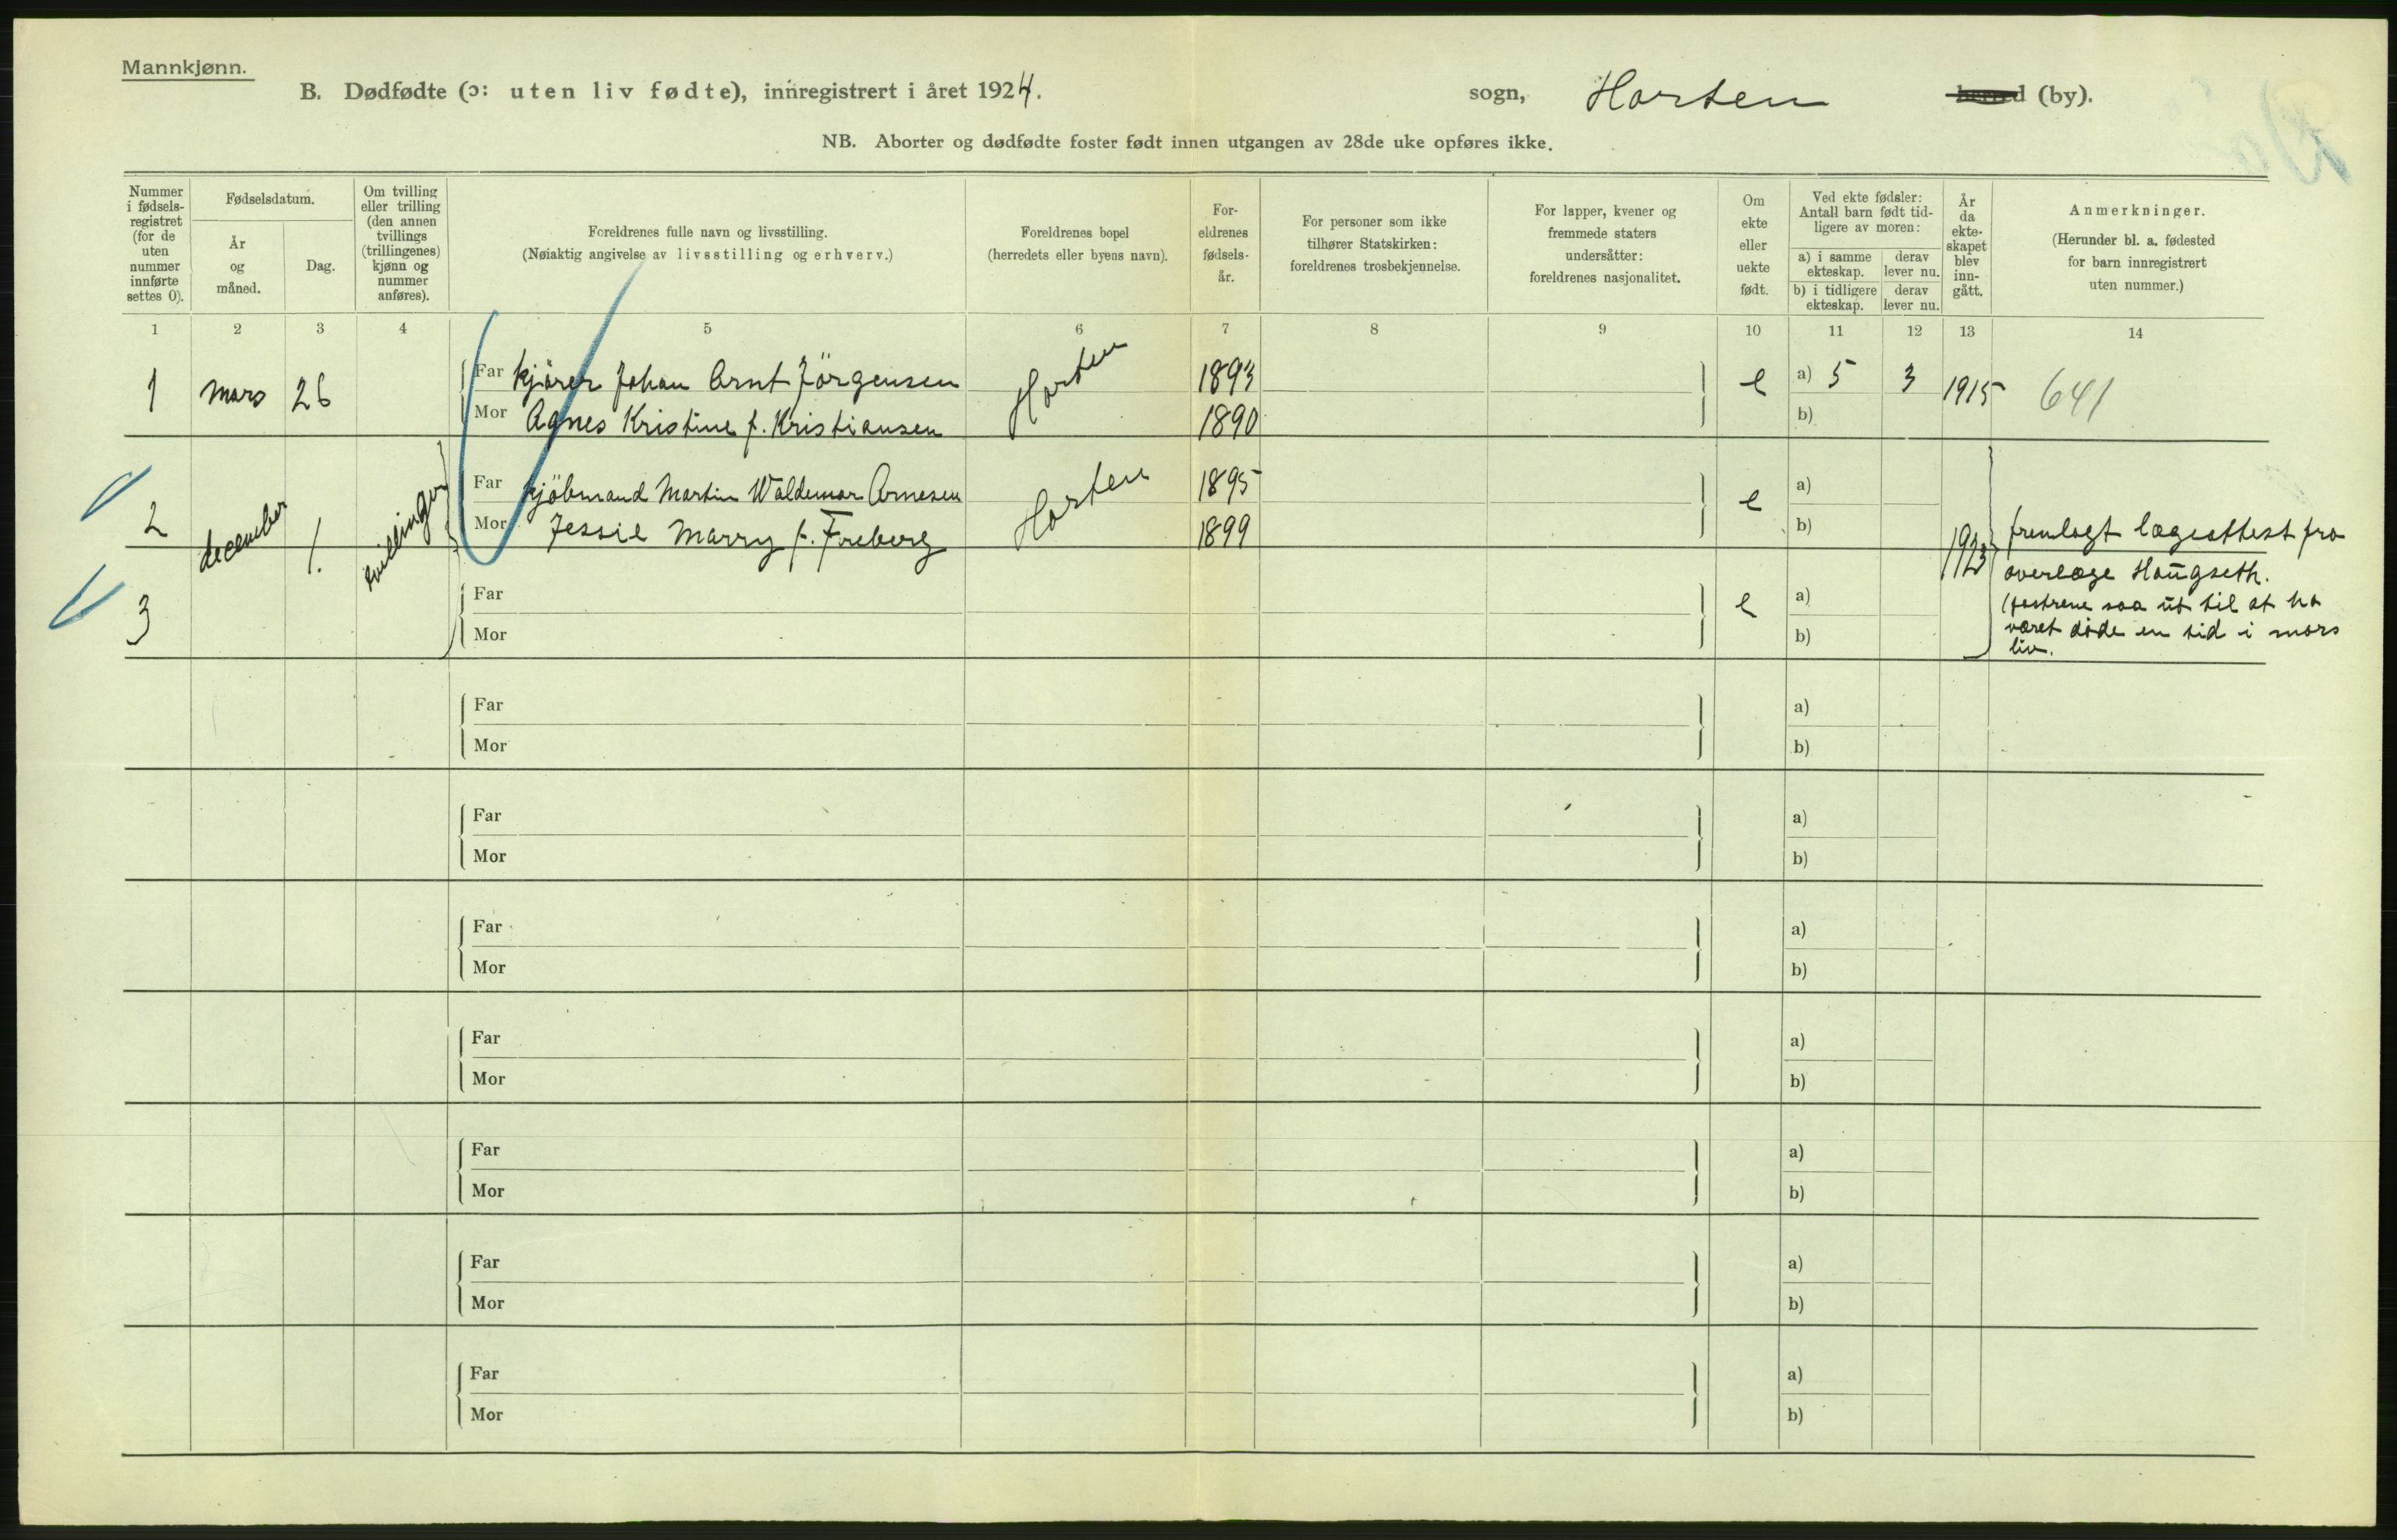 Mannkjønn.
B. Dødfødte (ɔ: uten liv fødte), innregistrert i året 1924. sogn, Horten herred (by).
NB. Aborter og dødfødte foster født innen utgangen av 28de uke opføres ikke.
Nummer i fødsels-registret (for de uten nummer innførte settes 0).
Fødselsdatum.
År og måned.
Dag.
Om tvilling eller trilling (den annen tvillings (trillingenes) kjønn og nummer anføres).
Foreldrenes fulle navn og livsstilling.
(Nøiaktig angivelse av livsstilling og erhverv.)
Foreldrenes bopel
(herredets eller byens navn).
For-eldrenes fødsels-år.
For personer som ikke tilhører Statskirken: foreldrenes trosbekjennelse.
For lapper, kvener og fremmede staters undersåtter: foreldrenes nasjonalitet.
Om ekte eller uekte født.
Ved ekte fødsler: Antall barn født tid-ligere av moren:
a) i samme ekteskap. derav lever nu.
b) i tidligere ekteskap. derav lever nu.
År da ekte-skapet blev inn-gått.
Anmerkninger.
(Herunder bl. a. fødested for barn innregistrert uten nummer.)
1 2 3 4 5 6 7 8 9 10 11 12 13 14
1 mars 26 Far kjører Johan Arnt Jörgensen Horten 1893 e a) 5 3 1915 641
Mor Agnes Kristine f. Kristiansen 1890 b)
2 december 1. tvillinger Far kjöbmand Martin Waldemar Arnesen Horten 1895 e a)
Mor Jessie Marry f. Freberg 1899 b) 1923 fremlagt lægeattest fra
overlæge Haugseth.
3 Far e a) (fostrene saa ut til at ha
Mor b) været döde en tid i mors
liv.
Far a)
Mor b)
Far a)
Mor b)
Far a)
Mor b)
Far a)
Mor b)
Far a)
Mor b)
Far a)
Mor b)
Far a)
Mor b)